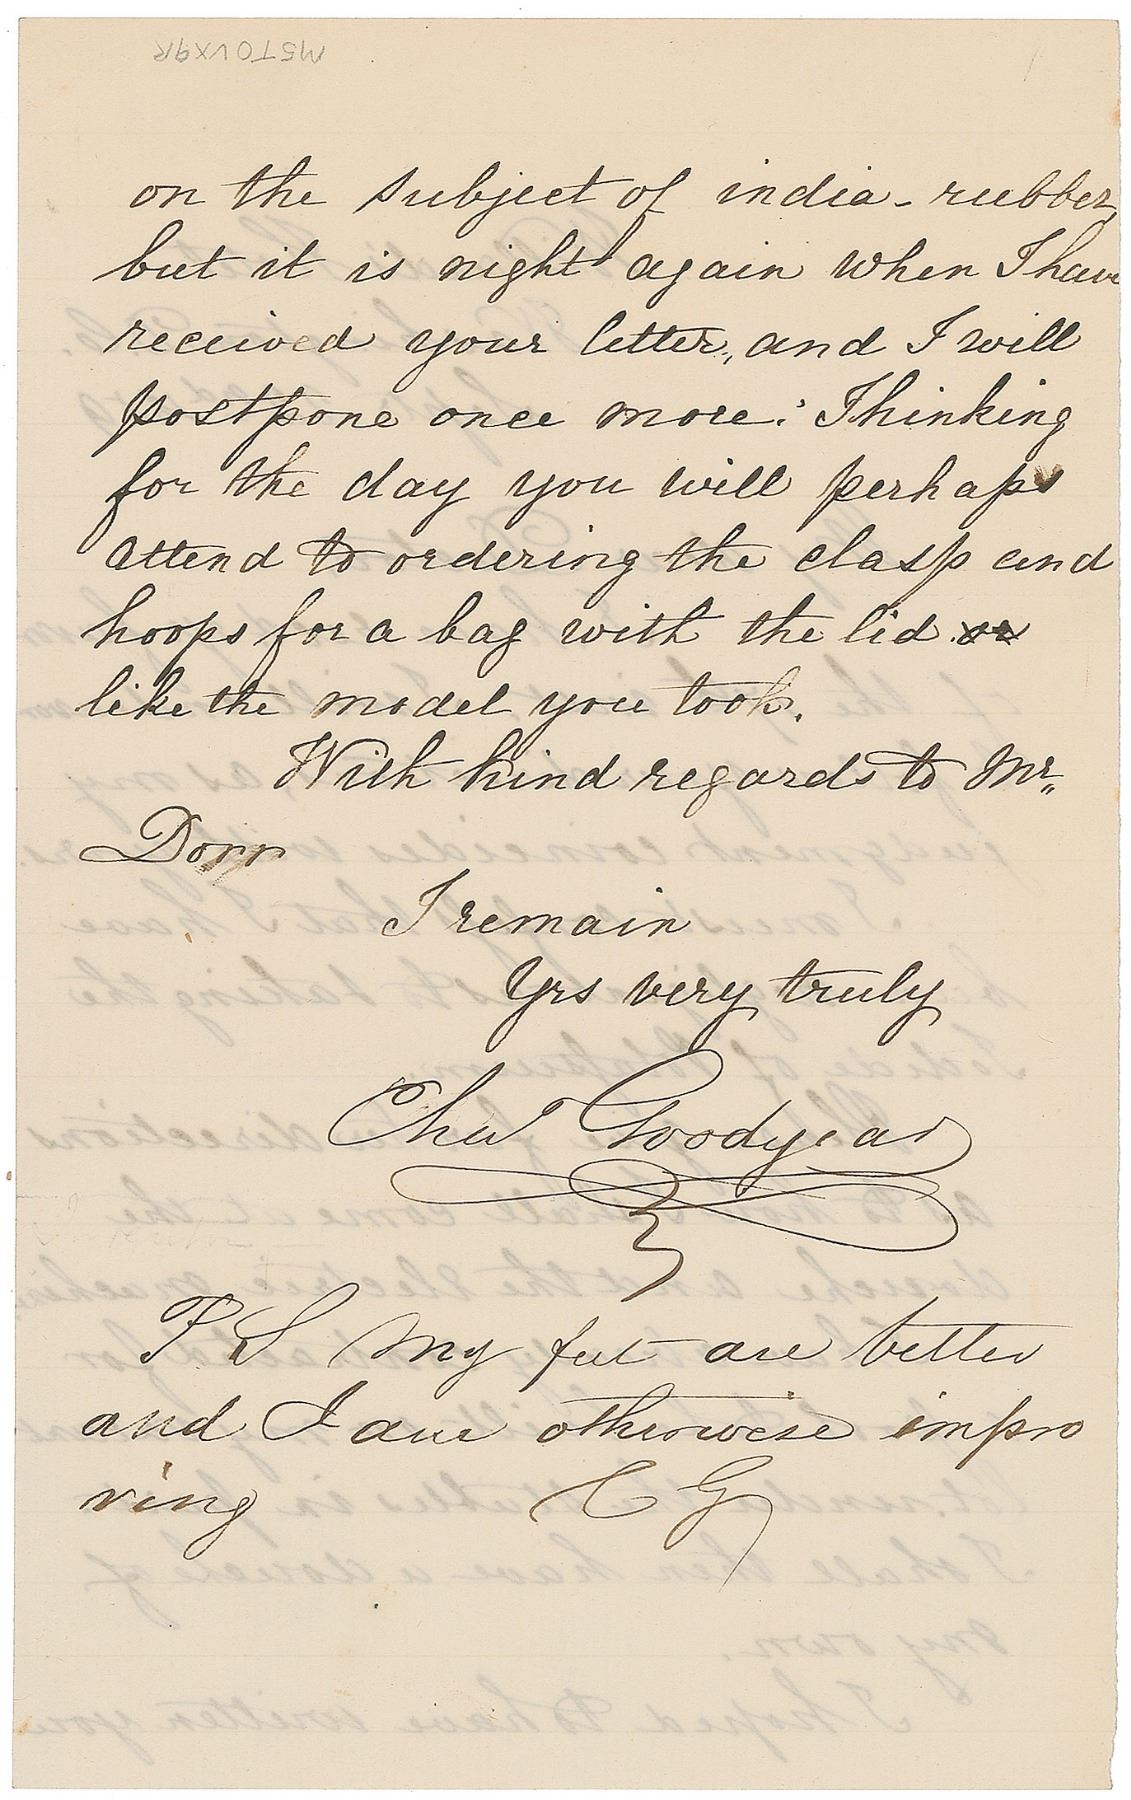 M5TOVX9R
on the subject of india-rubber,
but it is night again when I have
received your letter, and I will
postpone once more: Thinking
for the day you will perhaps
attend to ordering the clasp and
hoops for a bag with the lid or
like the model you took.
With kind regards to Mr.
Dorr
I remain
Yrs very truly
Chas Goodyear
P S My feet are better
and I am otherwise impro
ving C G